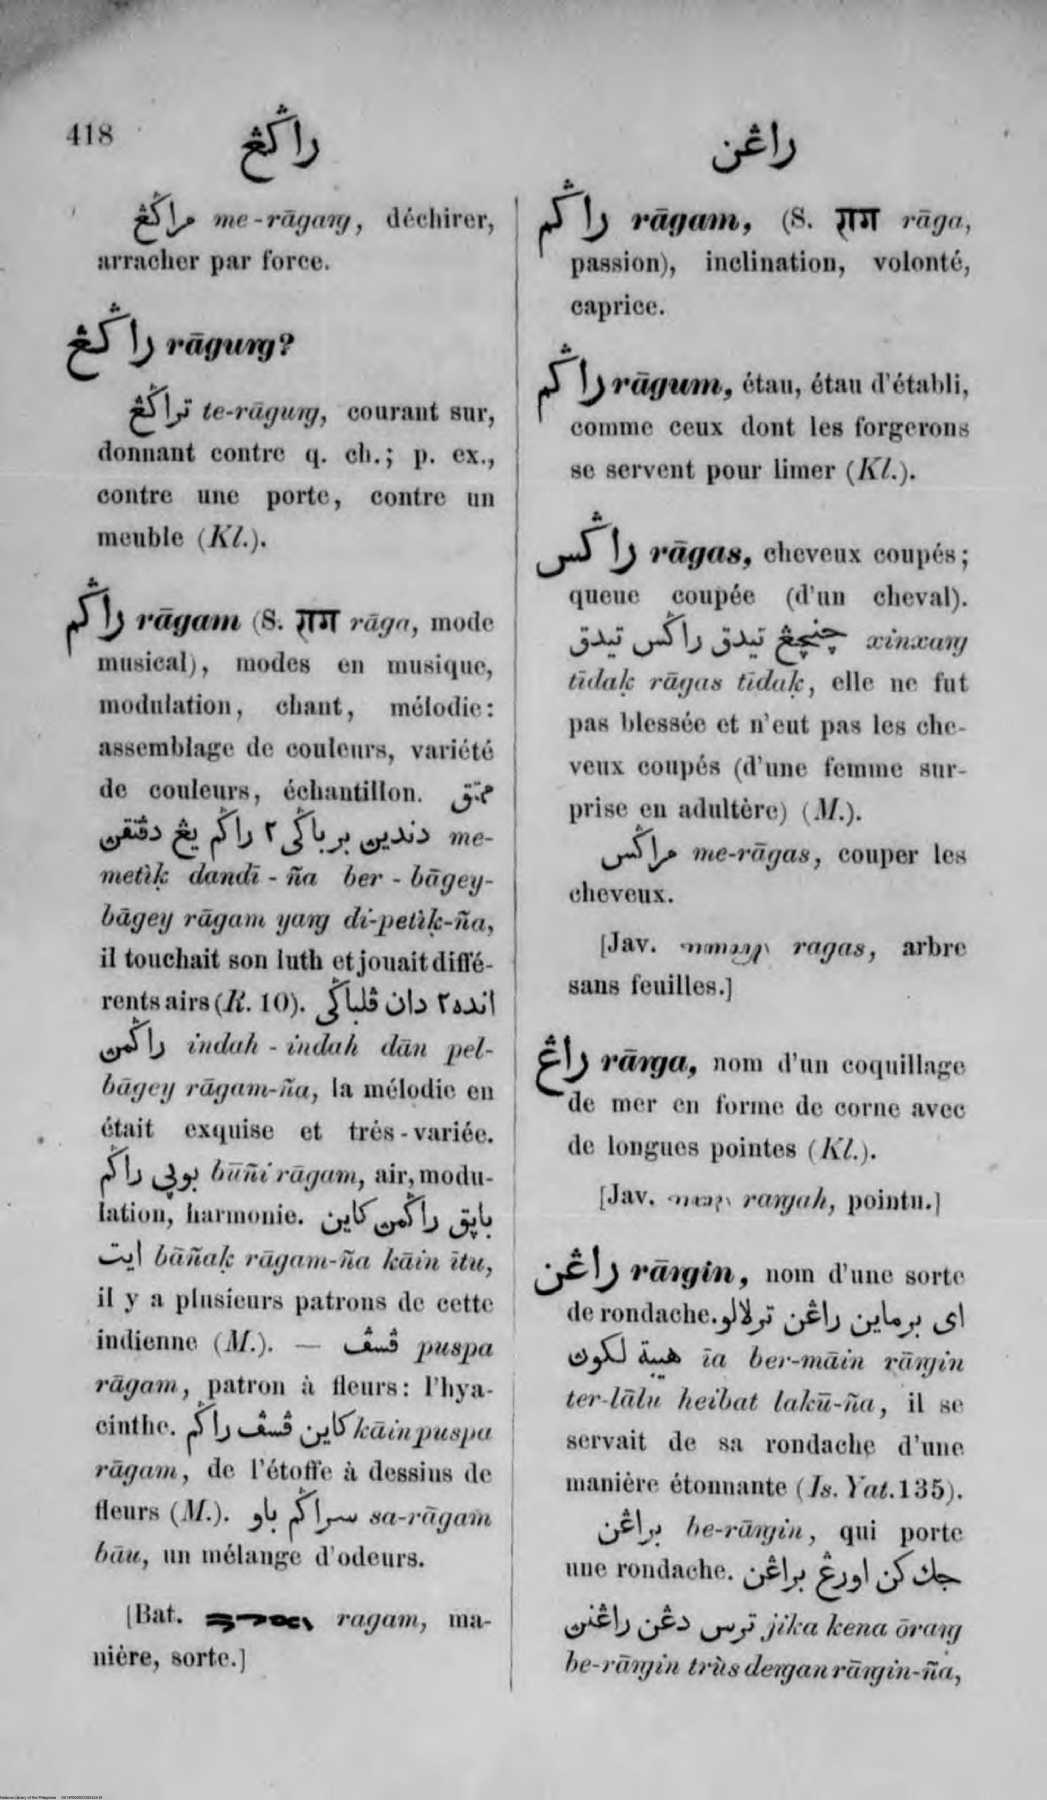 418
راݢڠ
راڠن
مراݢڠ me-rāgaŋg, déchirer,
arracher par force.
راݢڠ rāguŋg?
تراݢڠ te-rāguŋg, courant sur,
donnant contre q. ch.; p. ex.,
contre une porte, contre un
meuble (Kl.).
راݢم rāgam (S. राग rāga, mode
musical), modes en musique,
modulation, chant, mélodie:
assemblage de couleurs, variété
de couleurs, échantillon. ممتق
دندين برباݢي ٢ راݢم يڠ دڤتقن me-
metik̤ dandī-ña ber-bāgey-
bāgey rāgam yaŋg di-petik̤-ña,
il touchait son luth et jouait diffé-
rents airs (R. 10). انده٢ دان ڤلباݢي
راݢمن indah-indah dān pel-
bāgey rāgam-ña, la mélodie en
était exquise et très-variée.
بوڽي راݢم būñi rāgam, air, modu-
lation, harmonie. باڽق راݢمن كاين
ايت bāñak̤ rāgam-ña kāin ītu,
il y a plusieurs patrons de cette
indienne (M.). — ڤسڤ puspa
rāgam, patron à fleurs: l'hya-
cinthe. كاين ڤسڤ راݢم kāin puspa
rāgam, de l'étoffe à dessins de
fleurs (M.). سراݢم باو sa-rāgam
bāu, un mélange d'odeurs.
[Bat. ragam, ma-
nière, sorte.]
راݢم rāgam, (S. राग rāga,
passion), inclination, volonté,
caprice.
راݢم rāgum, étau, étau d'établi,
comme ceux dont les forgerons
se servent pour limer (Kl.).
راݢس rāgas, cheveux coupés;
queue coupée (d'un cheval).
چنچڠ تيدق راݢس تيدق xinxaŋg
tīdak̤ rāgas tīdak̤, elle ne fut
pas blessée et n'eut pas les che-
veux coupés (d'une femme sur-
prise en adultère) (M.).
مراݢس me-rāgas, couper les
cheveux.
[Jav. ragas, arbre
sans feuilles.]
راڠ rāŋga, nom d'un coquillage
de mer en forme de corne avec
de longues pointes (Kl.).
[Jav. raŋgah, pointu.]
راڠن rāŋgin, nom d'une sorte
de rondache. اي برماين راڠن ترلالو
هيبة لكون īa ber-māin rāŋgin
ter-lālu heibat lakū-ña, il se
servait de sa rondache d'une
manière étonnante (Is. Yat. 135).
براڠن be-rāŋgin, qui porte
une rondache. جك كن اورڠ براڠن
ترس دڠن راڠنن jika kena ōraŋg
be-rāŋgin trùs deŋgan rāŋgin-ña,